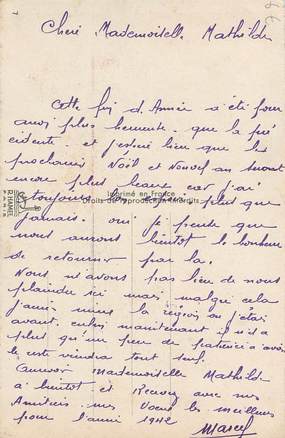 Chere Mademoiselle Mathilde
Cette fin d'Année a été pour
moi plus clemente que la pré
cidente et j'espère bien que le
prochain Noël et Nouvel an seront
encore plus beaux car j'ai
toujours bon espoir plus que
Imprimé en France
droits de reproduction interdits
jamais. oui je pense que
nous aurons bientôt le bonheur
de retourner par la.
Nous n'avons pas lieu de nous
plaindre ici mais malgré cela
j'aime mieux la région ou j'étais
avant. enfin maintenant il n'y a
plus qu'un peu de patience a avoir
le reste viendra tout seul.
Mademoiselle Mathilde
a bientôt et Recevez avec mes
Amitiés mes Voeux les meilleurs
pour l'année 1942
Marcel
R. HAMEL
PARIS